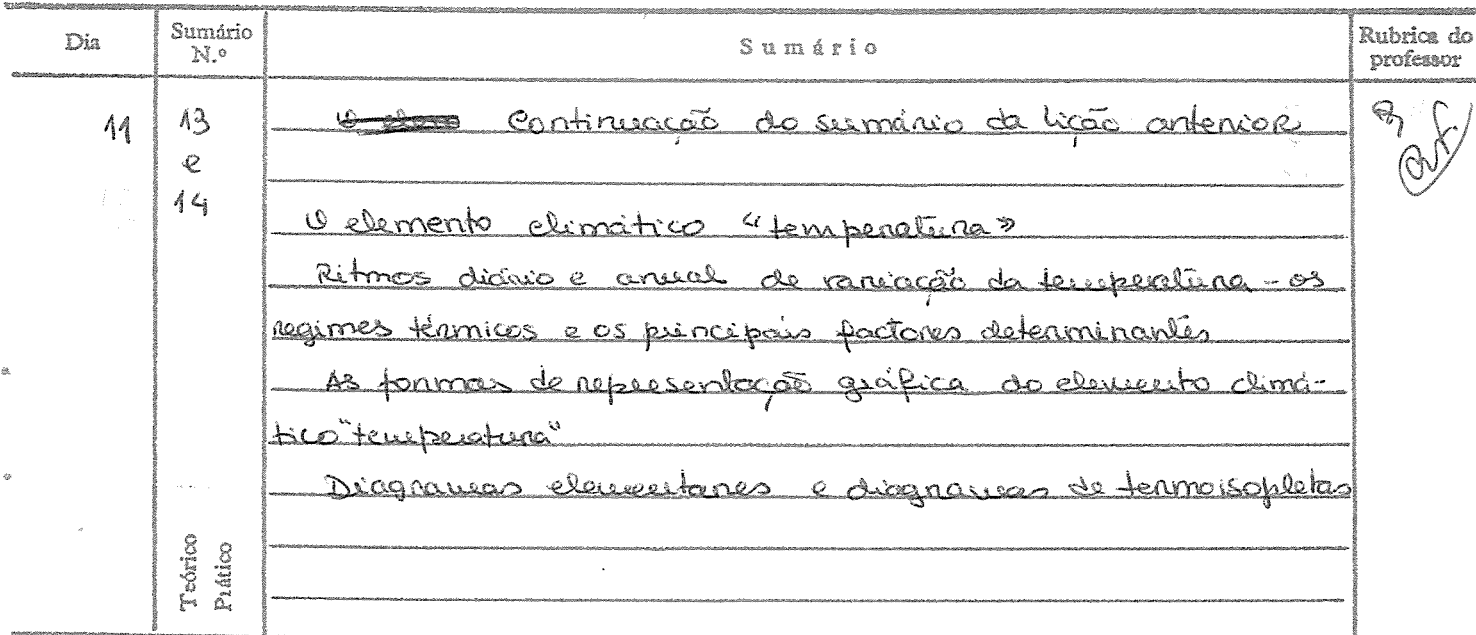 Dia Sumário N.º Sumário Rubrica do professor
11 13 e 14 Continuação do sumário da lição anterior
O elemento climático "temperatura"
Ritmos diário e anual de variação da temperatura - os
regimes térmicos e os principais factores determinantes
As formas de representação gráfica do elemento climá-
tico "temperatura"
Diagramas elementares e diagramas de termoisopletas
Teórico
Prático